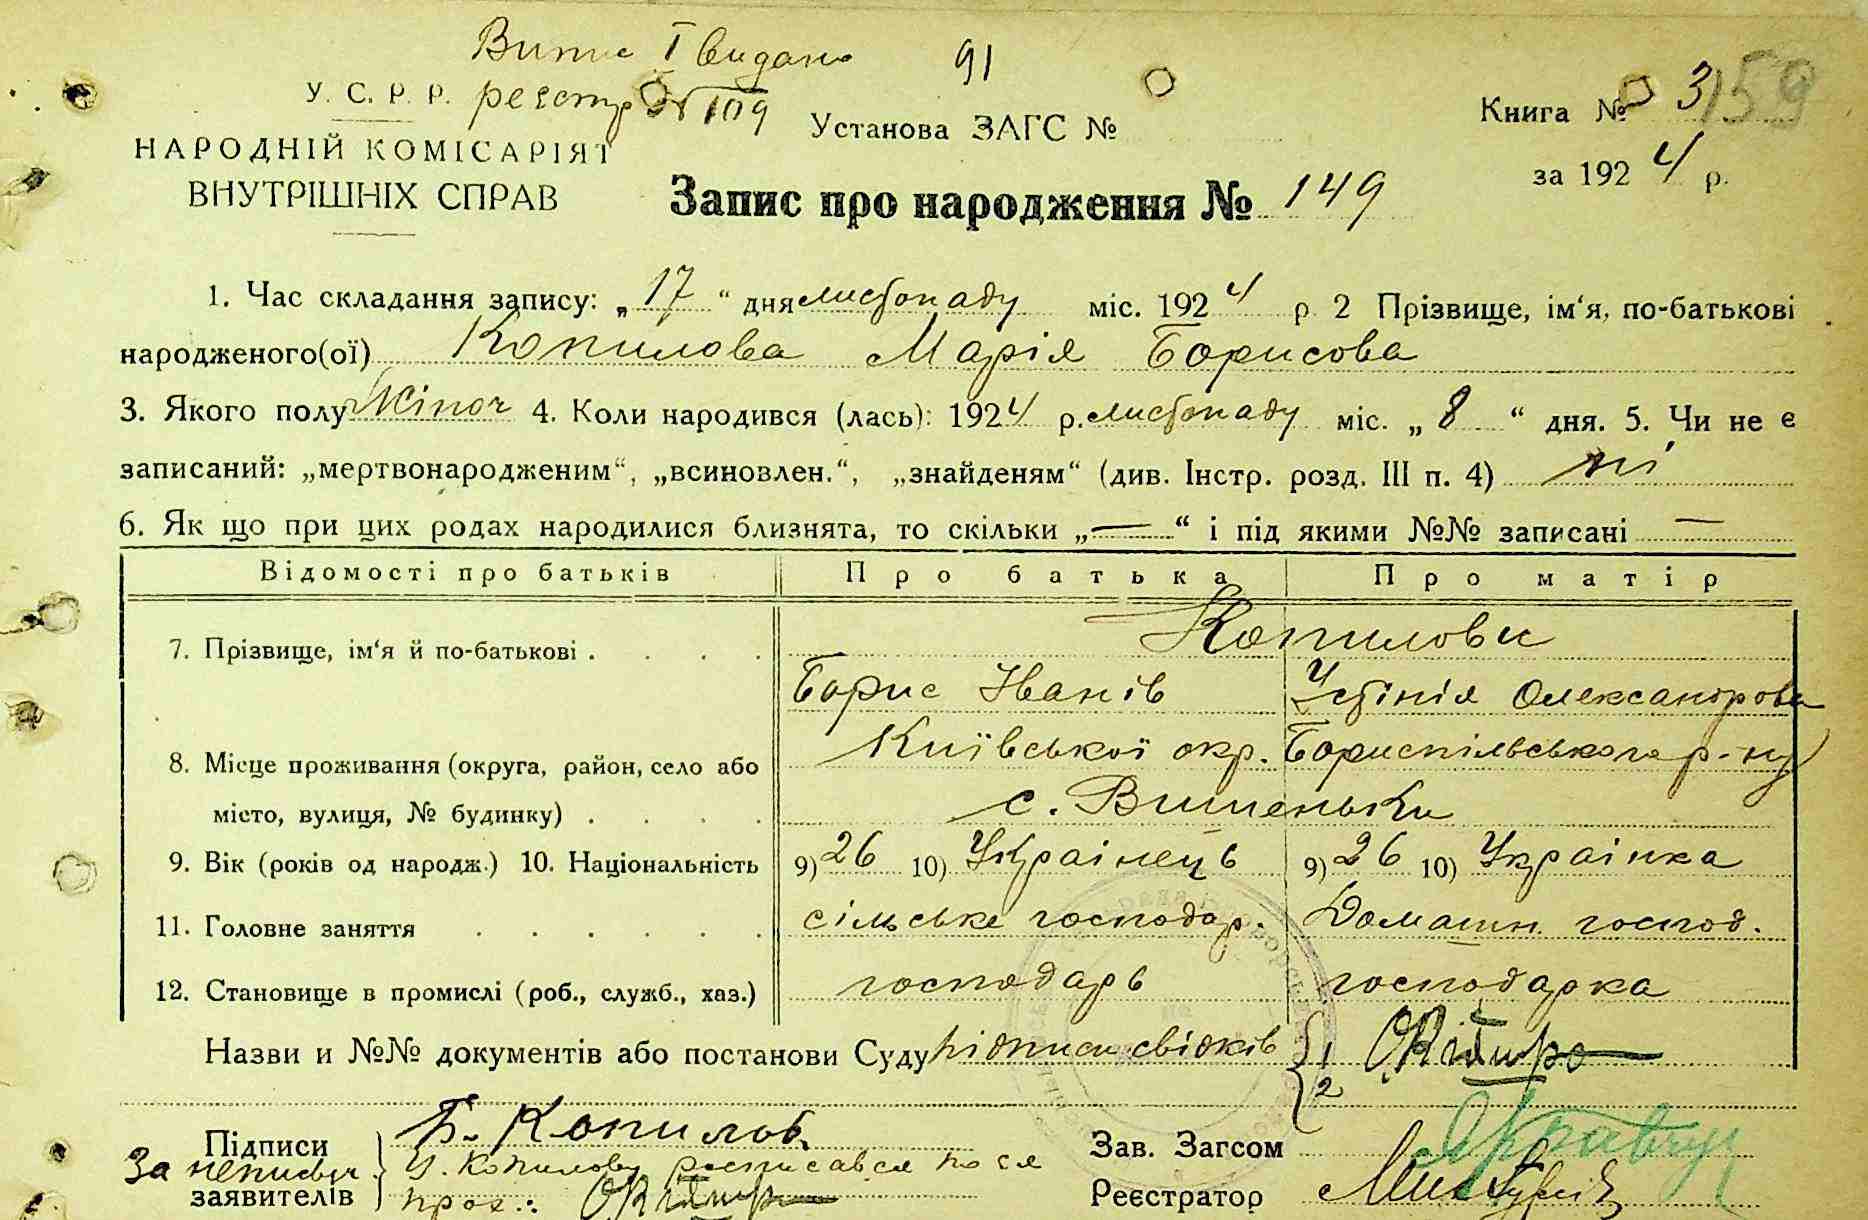 Випис I видано
91
У. С. Р. Р. реєстр № 109
Установа ЗАГС №
Книга № 3 159
НАРОДНІЙ КОМІСАРІЯТ
ВНУТРІШНІХ СПРАВ
за 1924 р.
Запис про народження № 149
1. Час складання запису: „17“ дня листопаду міс. 1924 р 2 Прізвище, ім‘я, по-батькові
народженого(ої) Копилова Марія Борисова
3. Якого полу Жіноч 4. Коли народився (лась): 1924 р. листопаду міс. „8“ дня. 5. Чи не є
записаний: „мертвонародженим“, „всиновлен.“, „знайденям“ (див. Інстр. розд. III п. 4) ні
6. Як що при цих родах народилися близнята, то скільки „—“ і під якими №№ записані —
Відомості про батьків Про батька Про матір
7. Прізвище, ім‘я й по-батькові . . . . Копилови
Борис Іванів Устінія Олександрова
8. Місце проживання (округа, район, село або Київської окр. Бориспільського р-ну
місто, вулиця, № будинку) . . . . с. Вишеньки
9. Вік (років од народж.) 10. Національність 9) 26 10) Українець 9) 26 10) Українка
11. Головне заняття . . . . . . сільське господар. Домашн. господ.
12. Становище в промислі (роб., служб., хаз.) господарь господарка
Назви и №№ документів або постанови Суду підписи свідків { 1
2
Підписи Б. Копилов
Зав. Загсом
За неписьм. У. Копилову росписався по єя
заявителів прох.:
Реєстратор